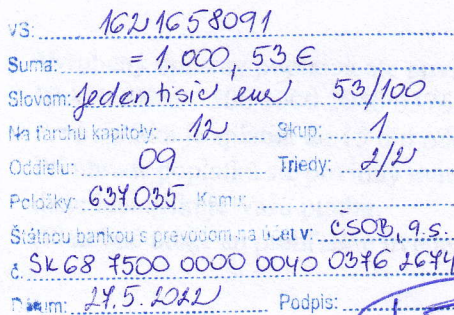 VS: 1621658091
Suma: = 1.000,53 €
Slovom: Jedentisic eur 53/100
Na ťarchu kapitoly: 12 Skup: 1
Oddielu: 09 Triedy: 2/2
Položky: 637035 Komu:
Štátnou bankou s prevodom na účet v: ČSOB, a.s.
č. SK68 7500 0000 0040 0376 2674
Dátum: 27.5.2022 Podpis: